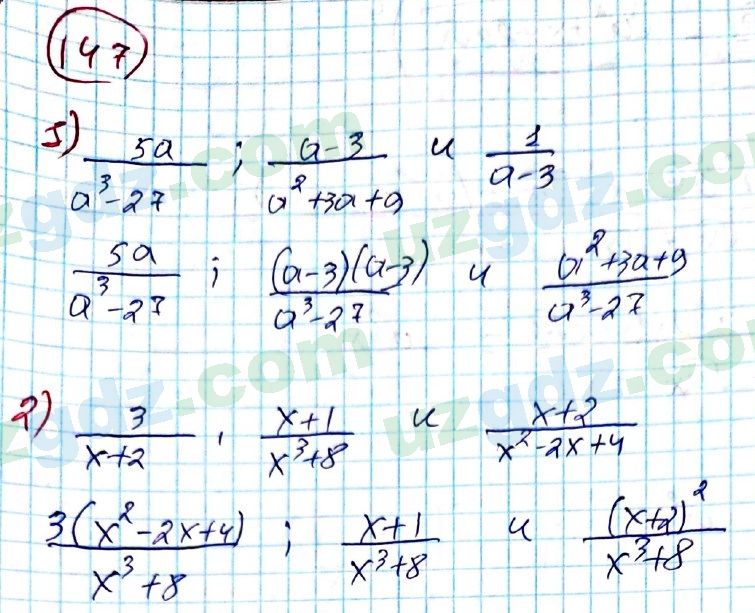 147
1) 5a/(a³-27) ; (a-3)/(a²+3a+9) и 1/(a-3)
5a/(a³-27) ; (a-3)(a-3)/(a³-27) и (a²+3a+9)/(a³-27)
2) 3/(x+2) , (x+1)/(x³+8) и (x+2)/(x²-2x+4)
3(x²-2x+4)/(x³+8) ; (x+1)/(x³+8) и (x+2)²/(x³+8)
uzgdz.com